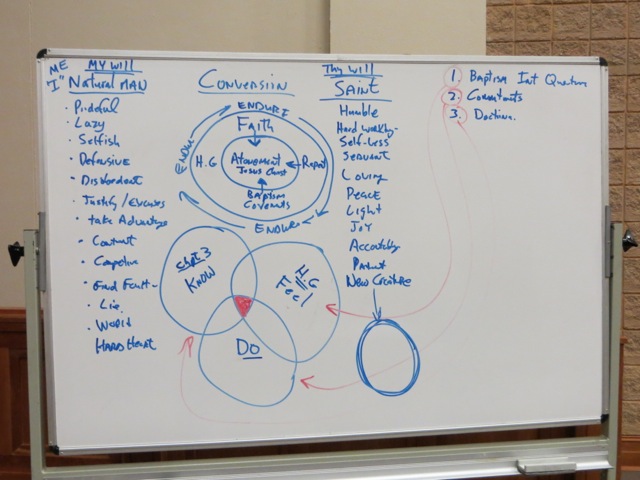 ME
"I"
MY Will
Natural MAN
Prideful
Lazy
Selfish
Defensive
Disobedient
Justify/Excuses
take Advantage
Find Fault
Lie
World
HARD Heart
CONVERSION
ENDURE
FAITH
ENDURE
H.G
Atonement
Jesus Christ
Repent
Baptism
Covenants
ENDURE
Chpt. 3
KNOW
HG
Feel
DO
Thy Will
SAINT
Humble
Hard working
Self-Less
Servant
Loving
Peace
Light
JOY
New Creature
1. Baptism Int Question
2. Covenants
3. Doctrine